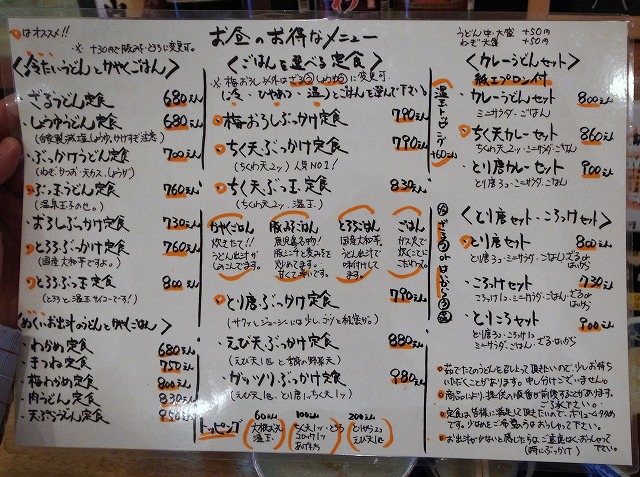 お昼のお得なメニュー
はオススメ!!
※ +30円で豚みそ・とろろに変更可。
うどん中・大盛 +50円
ねぎ大盛 +50円
〈冷たいうどんとかやくごはん〉
・ざるうどん定食 680えん
・しょうゆうどん定食 680えん
・ぶっかけうどん定食 700えん
(ねぎ・かつお・天カス・しょうが)
・ぶっ玉うどん定食 760えん
(温泉玉子のせ。)
・おろしぶっかけ定食 730えん
・とろろぶっかけ定食 760えん
(国産大和芋ですよ。)
・とろろぶっ玉定食 800えん
(とろろと温玉サイコーです!)
〈ぬくいお出汁のうどんとかやくごはん〉
・わかめ定食 680えん
・きつね定食 750えん
・梅わかめ定食 800えん
・肉うどん定食 830えん
・天ぷらうどん定食 950えん
〈ごはんを選べる定食〉
(冷・ひやあつ・温)とごはんを選んで下さい
・梅おろしぶっかけ定食 790えん
・ちく天ぶっかけ定食 790えん
(ちくわ天2ッ) 人気NO1!
・ちく天ぶっ玉定食 830えん
(ちくわ天2ッ、温玉)
かやくごはん
炊きたて!!
うどん出汁が
しみこんでます。
豚みそごはん
鹿児島名物!
豚ミンチと麦みそを
炒めてます。
甘くて辛いです。
とろろごはん
国産大和芋。
うどん出汁で
味付けして
ます。
ごはん
ガス火で
炊くことに
こだわる。
・とり唐ぶっかけ定食 790えん
・えび天ぶっかけ定食 880えん
(えび天1匹と季節の野菜天)
・ガッツリぶっかけ定食 980えん
(えび天1匹、とり唐1、ちく天1)
トッピング
60えん
大根おろし
温玉
100えん
ちく天1ッ・とろろ
コロッケ1ッ
あげもち
200えん
とりから2コ
えび天1匹
〈カレーうどんセット〉
紙エプロン付
・カレーうどんセット 800えん
ミニサラダ・ごはん
・ちく天カレーセット 860えん
ちくわ天2ッ・ミニサラダ・ごはん
・とり唐カレーセット 900えん
とり唐3コ・ミニサラダ・ごはん
温玉トッピング+60えん
〈とり唐セット・ころっけセット〉
・とり唐セット 800えん
・ころっけセット 730えん
・とりころセット 900えん
とり唐3コ・ころっけ1ヶ
ミニサラダ・ごはん・ざるorぶっかけ
茹でたてのうどんをお出しして頂きたいので、少しお待ち
いただくことがあります。申し分けございません。
商品により、提供の順番が前後することがあります。
ご了承下さい。
定食は皆様に満足して頂きたいので、ボリューム多めです。
少なめとご希望の方はおっしゃって下さい。
お出汁が少ないと感じたらば、ご遠慮なくおっしゃって
下さい。
(特にぶっかけ)